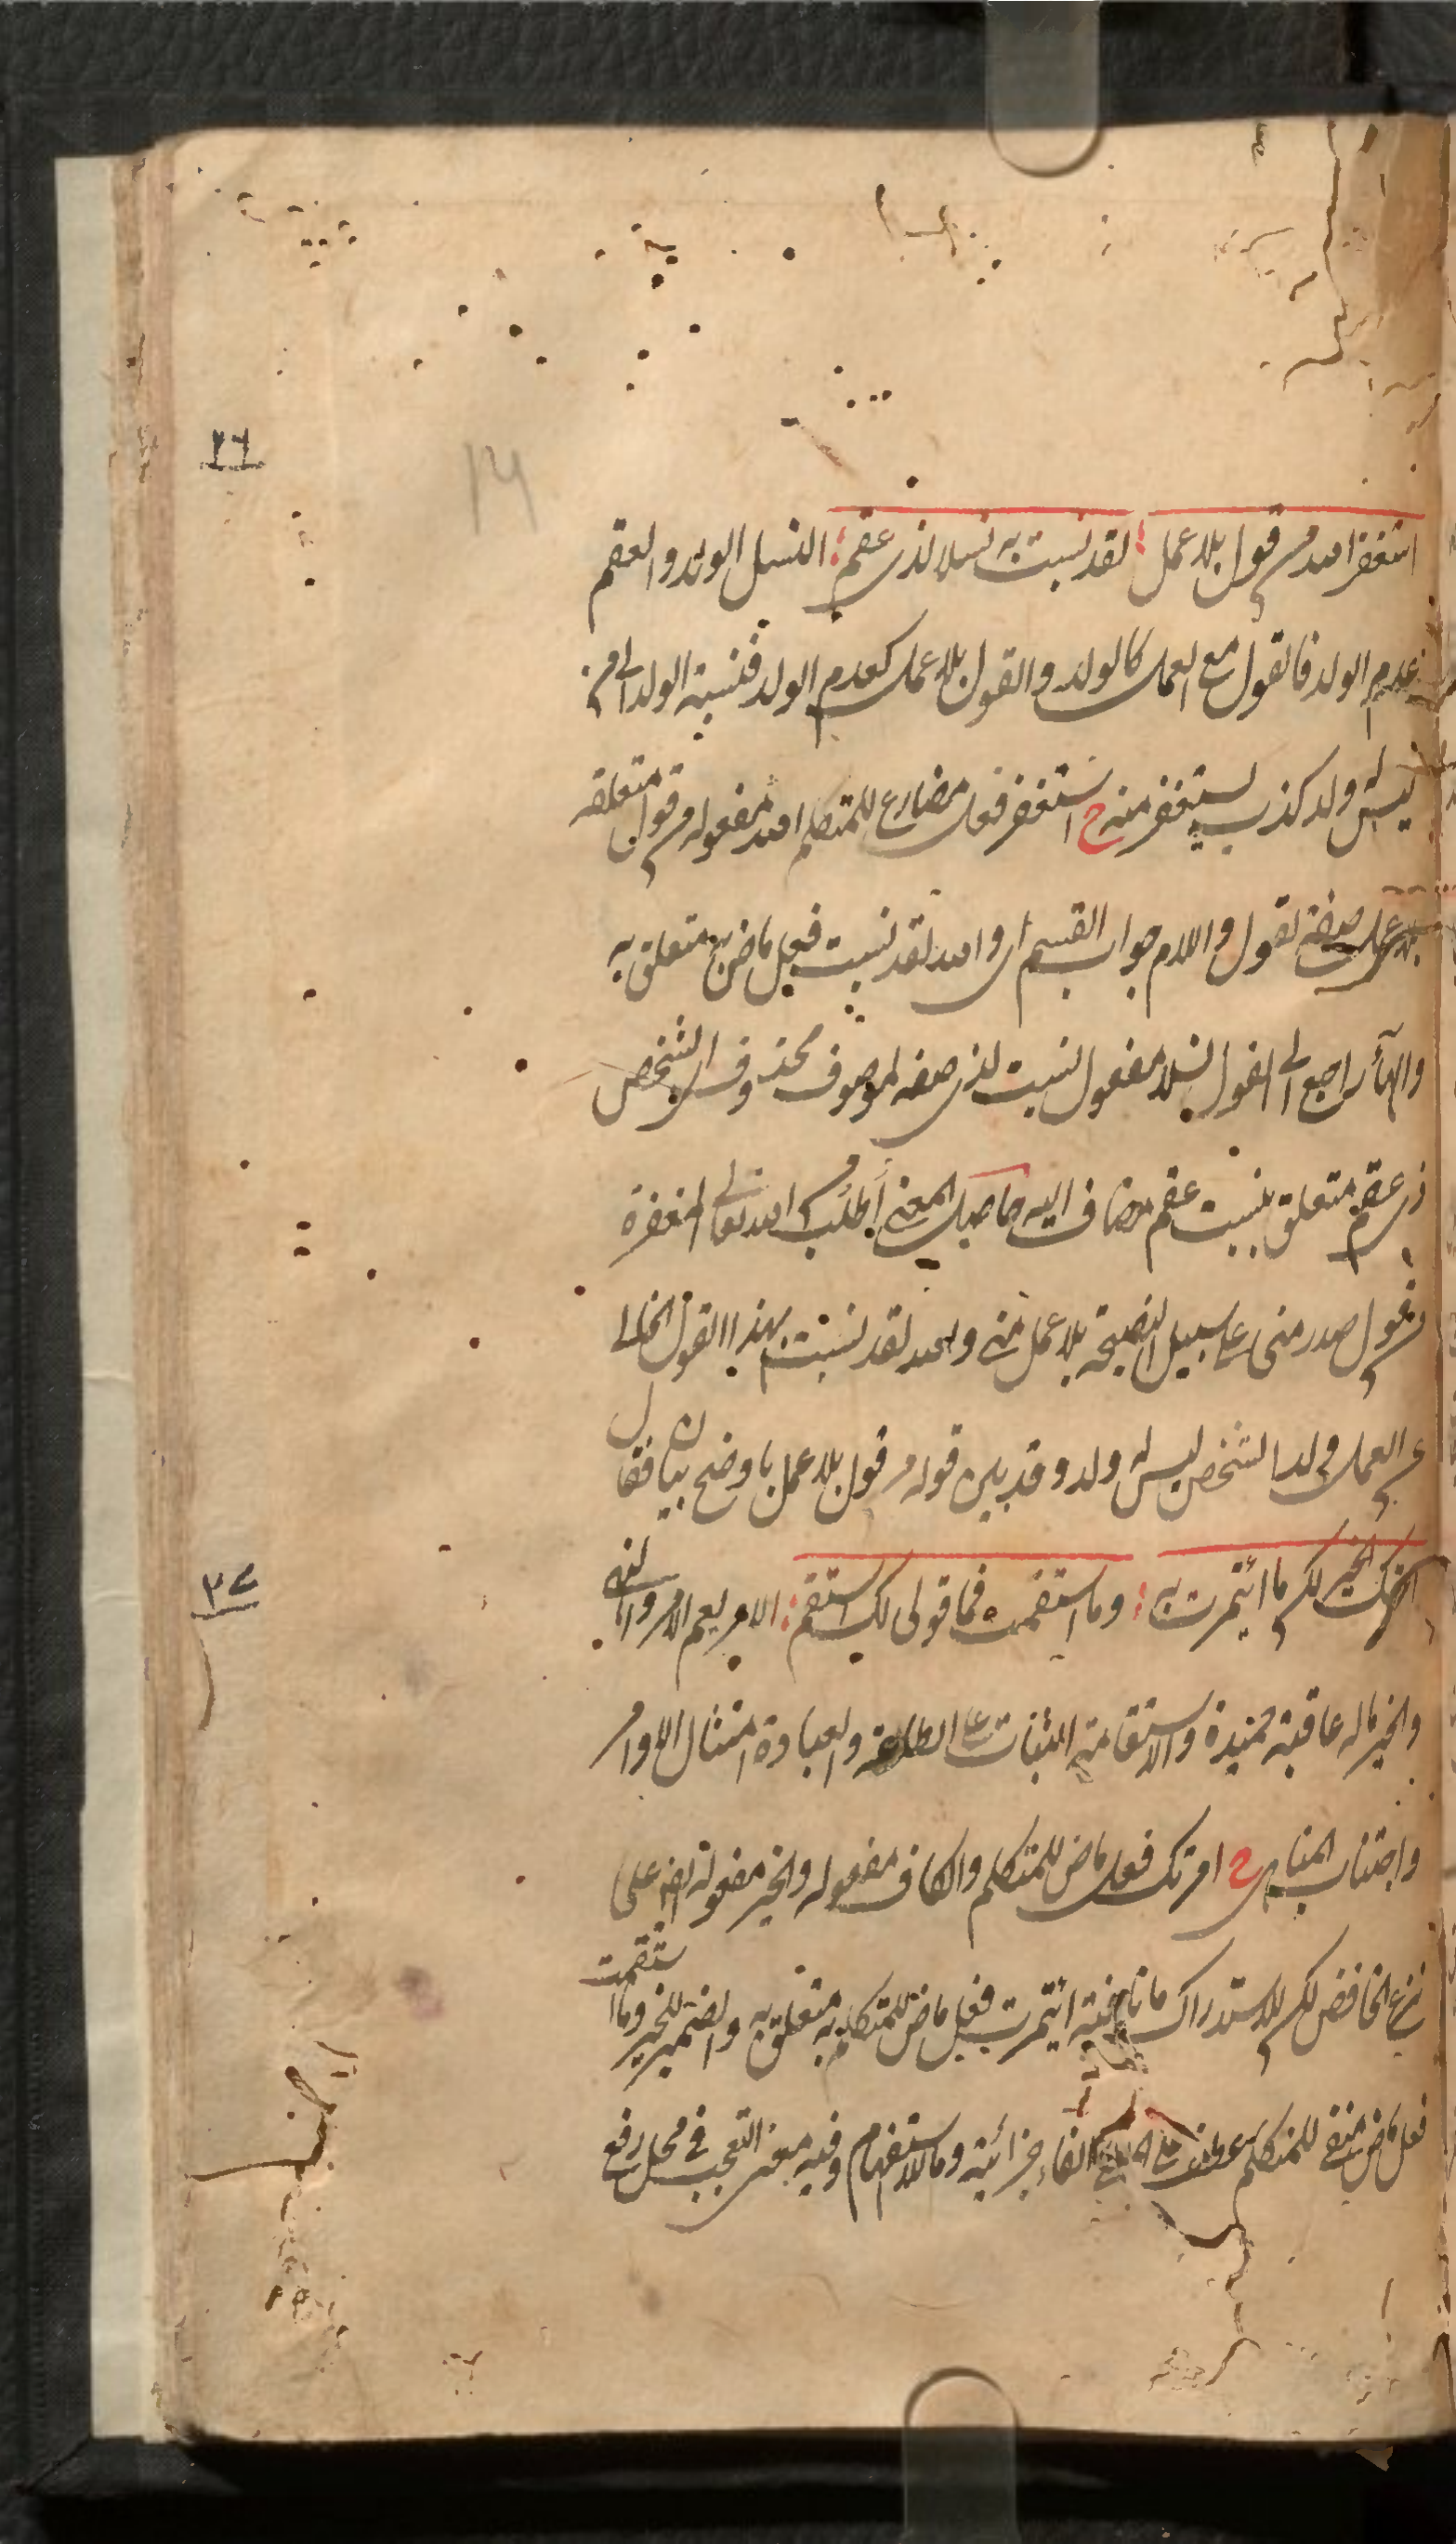 ٢٦
14
استغفر الله من قول بلا عمل ؛ لقد نسبت به نسلا لذي عقم ؛ النسل الولد والعقم
عدم الولد فالقول مع العمل كالولد والقول بلا عمل كعدم الولد فنسبة الولد الى من
ليس له ولد كذب يستغفر منه ح استغفر فعل مضارع للمتكلم الله مفعوله من قول متعلقه
بلا عمل صفة لقول واللام جواب القسم اى والله لقد نسبت فعل ماض به متعلق به
والهاء راجع الى القول نسلا مفعول لنسبت لذى صفة لموصوف محذوف اى لشخص
ذى عقم متعلق بنسبت عقم مضاف اليه حاصل المعنى أطلب من الله تعالى المغفرة
من قول صدر منى على سبيل النصيحة بلا عمل منى والله لقد نسبت بهذا القول الخالى
عن العمل ولدا لشخص ليس له ولد وقد بين قوله من قول بلا عمل باوضح بيان فقال
٢٧
امرتك الخير لكن ما ائتمرت به ؛ وما استقمت فما قولى لك استقم ؛ الامر يعم الامر والنهى
والخير ما له عاقبة حميدة والاستقامة الثبات على الطاعة والعبادة امتثال الاوامر
واجتناب المناهى ح امرتك فعل ماض للمتكلم والكاف مفعوله والخير مفعوله نصبه على
نزع الخافض لكن للاستدراك ما نافية ائتمرت فعل ماض للمتكلم به متعلق به والضمير للخير وما استقمت
فعل ماض منفى للمتكلم عطف على الفاء جزائية وما للاستفهام وفيه معنى التعجب فى محل رفع